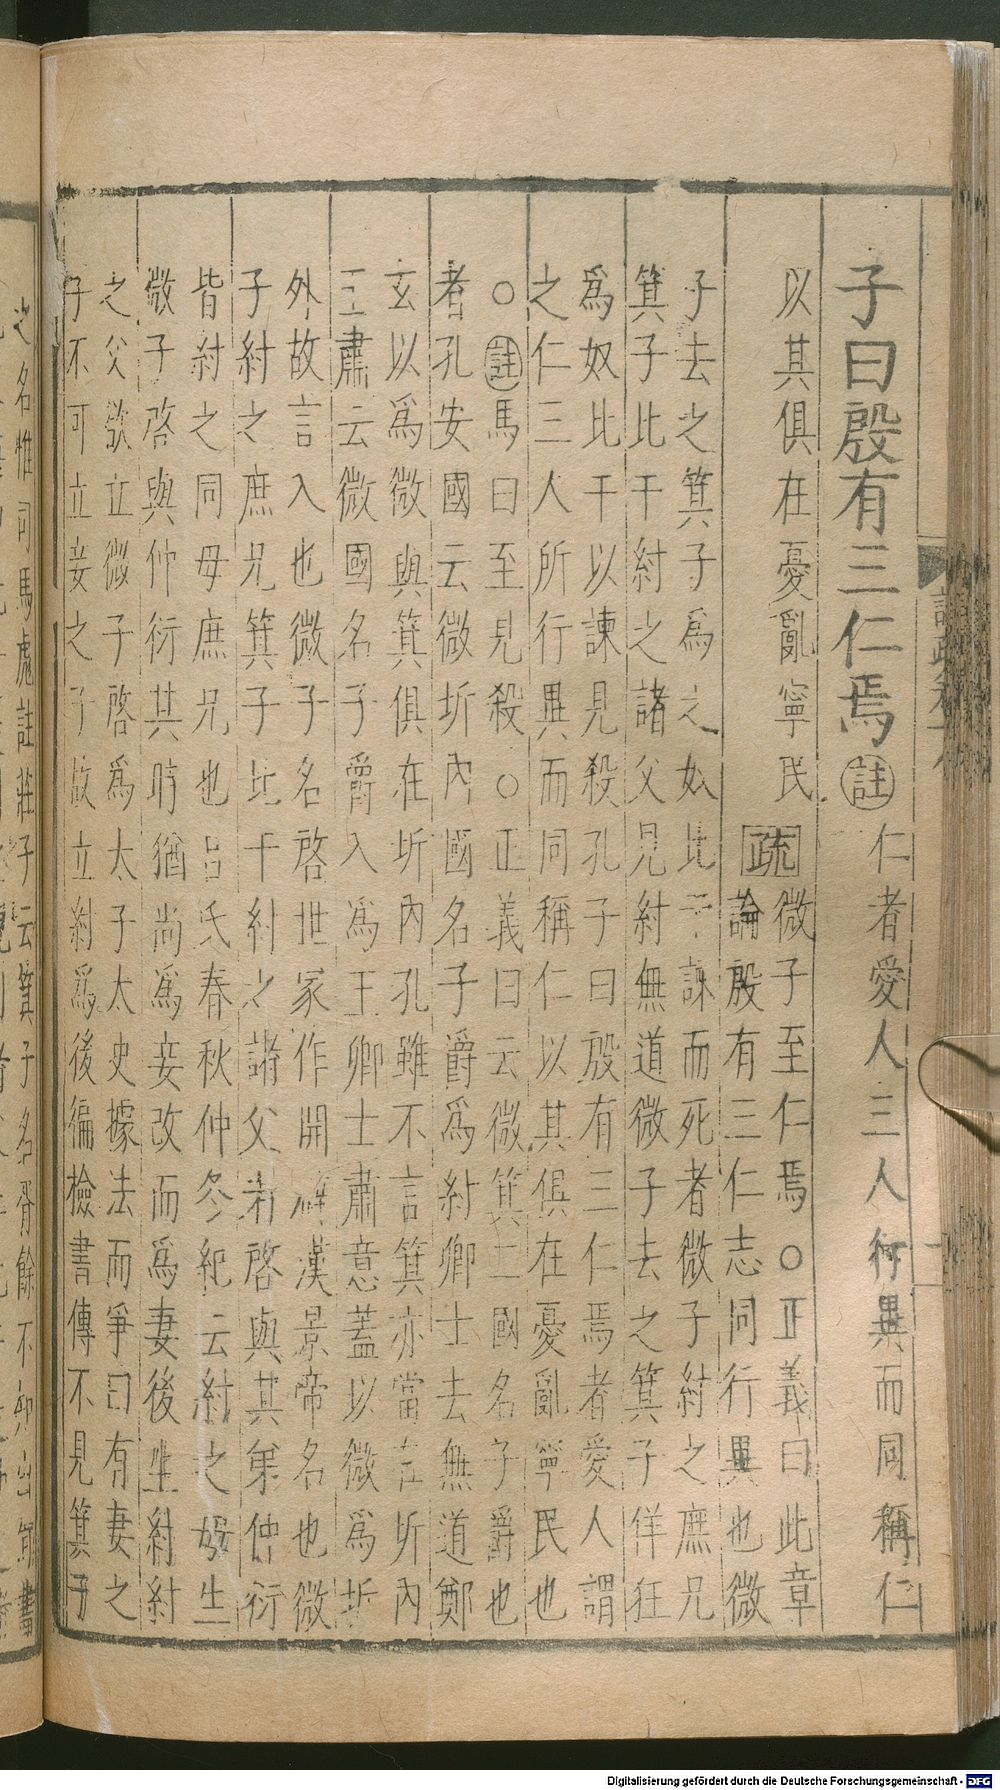 子曰殷有三仁焉註仁者愛人三人行異而同稱仁
以其俱在憂亂寧民
疏微子至仁焉○正義曰此章
論殷有三仁志同行異也微
子去之箕子爲之奴比干諫而死者微子紂之庶兄
箕子比干紂之諸父見紂無道微子去之箕子佯狂
爲奴比干以諫見殺孔子曰殷有三仁焉者愛人謂
之仁三人所行異而同稱仁以其俱在憂亂寧民也
○註馬曰至見殺○正義曰云微箕二國名子爵也
者孔安國云微圻內國名子爵爲紂卿士去無道鄭
玄以爲微與箕俱在圻內孔雖不言箕亦當在圻內
王肅云微國名子爵入爲王卿士肅意蓋以微爲圻
外故言入也微子名啓世家作開 漢景帝名也微
子紂之庶兄箕子比干紂之諸父者啓與其弟仲衍
皆紂之同母庶兄也呂氏春秋仲冬紀云紂之母生
微子啓與仲衍其時猶尚爲妾改而爲妻後生紂紂
之父欲立微子啓爲太子太史據法而爭曰有妻之
子不可立妾之子故立紂爲後徧檢書傳不見箕子
之名惟司馬彪註莊子云箕子名胥餘不知出何書